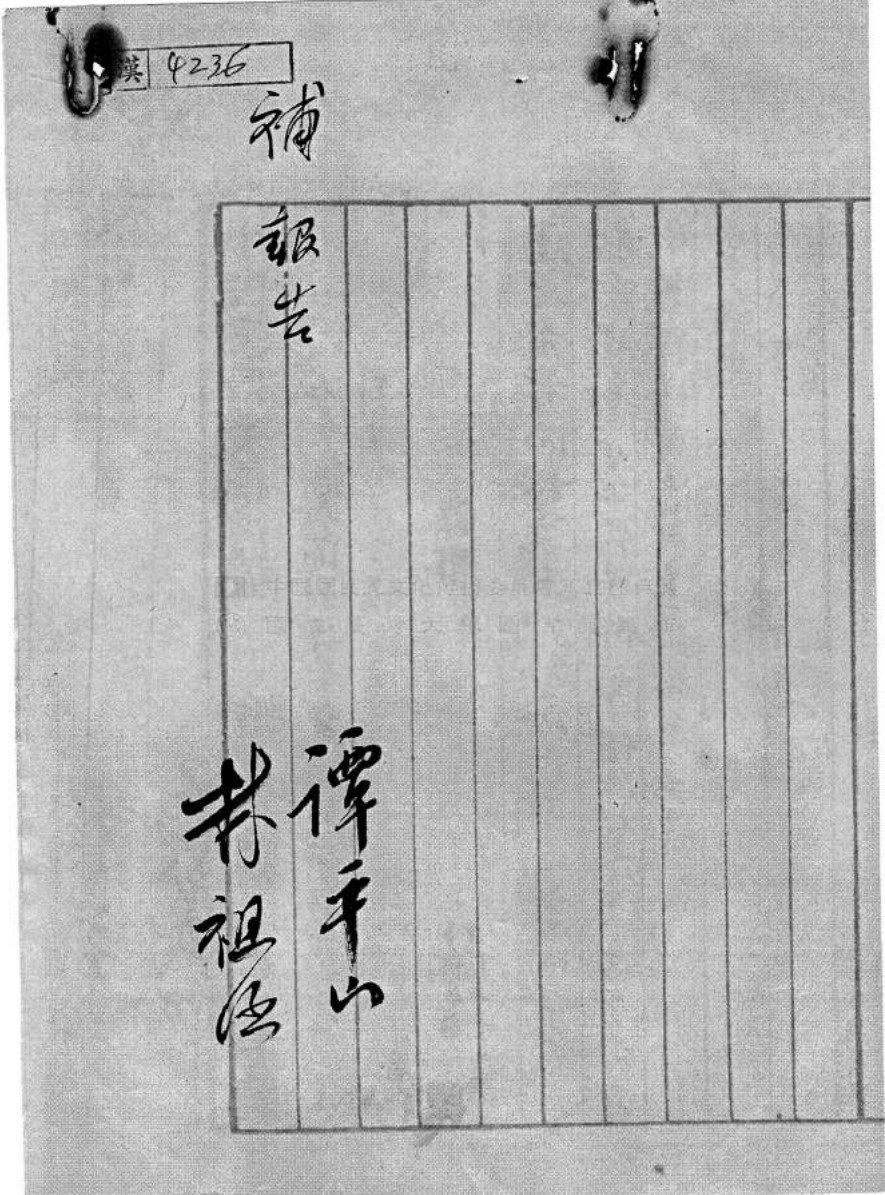 漢 4236
補報告
譚平山
林祖涵